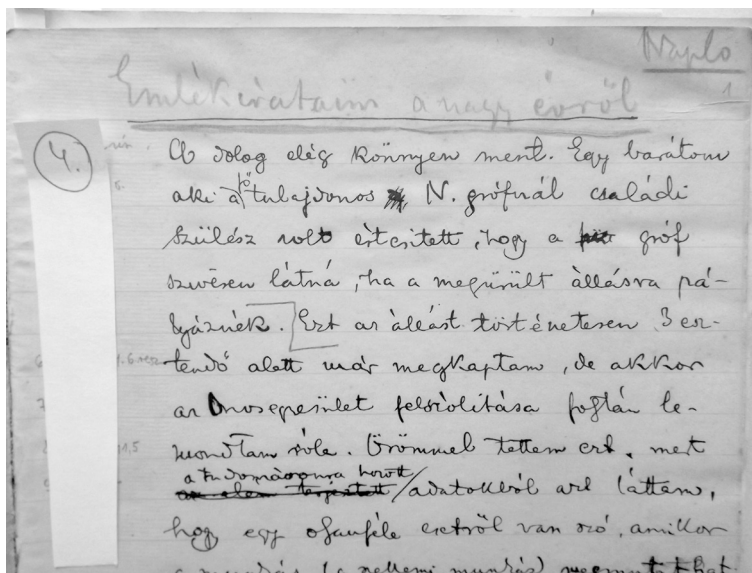 Napló
1
Emlékirataim a nagy évről
4.
A dolog elég könnyen ment. Egy barátom
aki a fő tulajdonos N. grófnál családi
szülész volt értesített, hogy a gróf
szivesen látná, ha a megürült állásra pá-
lyáznék. Ezt az állást történetesen 3 esz-
tendő alatt már megkaptam, de akkor
az Orvosegyesület felszólitása folytán le-
mondtam róla. Örömmel tettem ezt, mert
a tudomásomra hozott
adatokból azt láttam,
hogy egy ofanféle esetről van szó, amikor